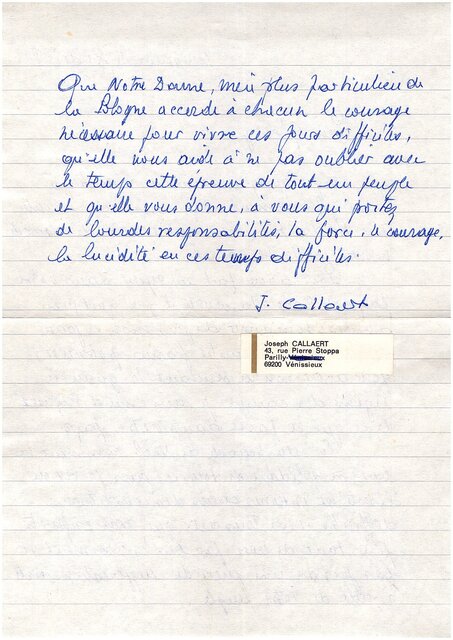 Que Notre Dame, mère plus particulière de
la Pologne accorde à chacun le courage
nécessaire pour vivre ces jours difficiles,
qu'elle nous aide à ne pas oublier avec
le temps cette épreuve de tout un peuple
et qu'elle vous donne, à vous qui portez
de lourdes responsabilités, la force, le courage,
la lucidité en ces temps difficiles.
J. Callaert
Joseph CALLAERT
43, rue Pierre Stoppa
Parilly-Vénissieux
69200 Vénissieux